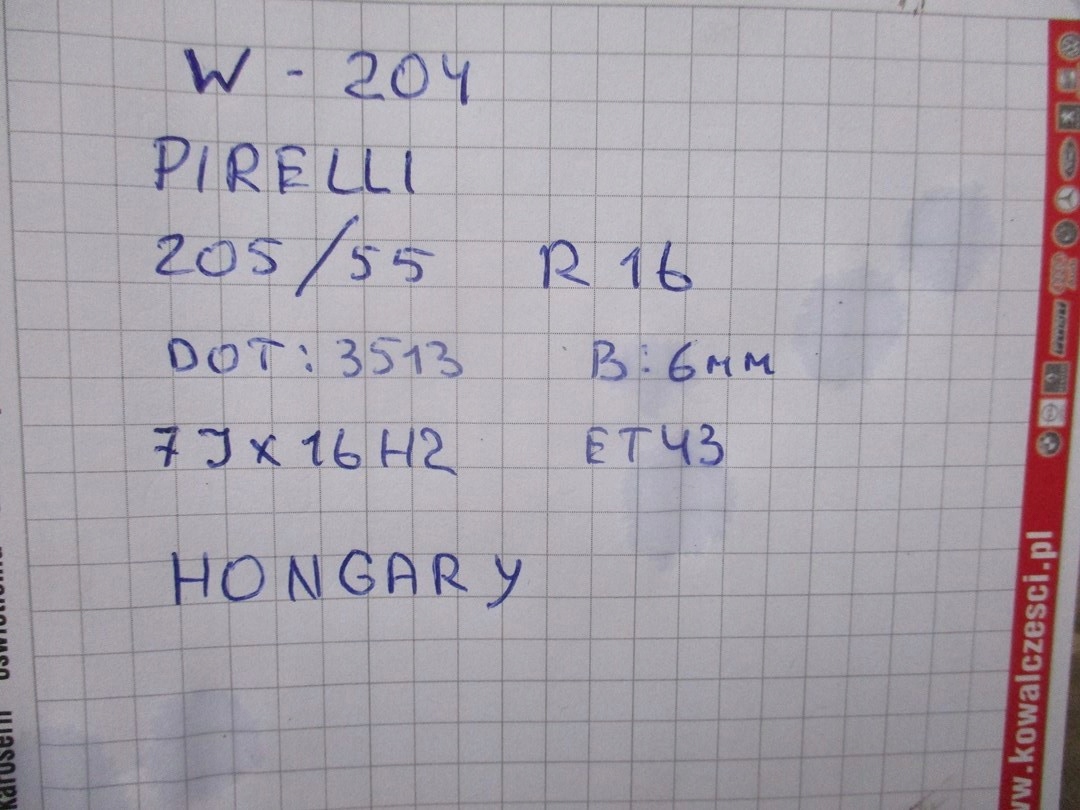 W - 204
PIRELLI
205/55 R 16
DOT: 3513 B: 6mm
7Jx16H2 ET43
HONGARY
w.kowalczesci.pl
karoserii